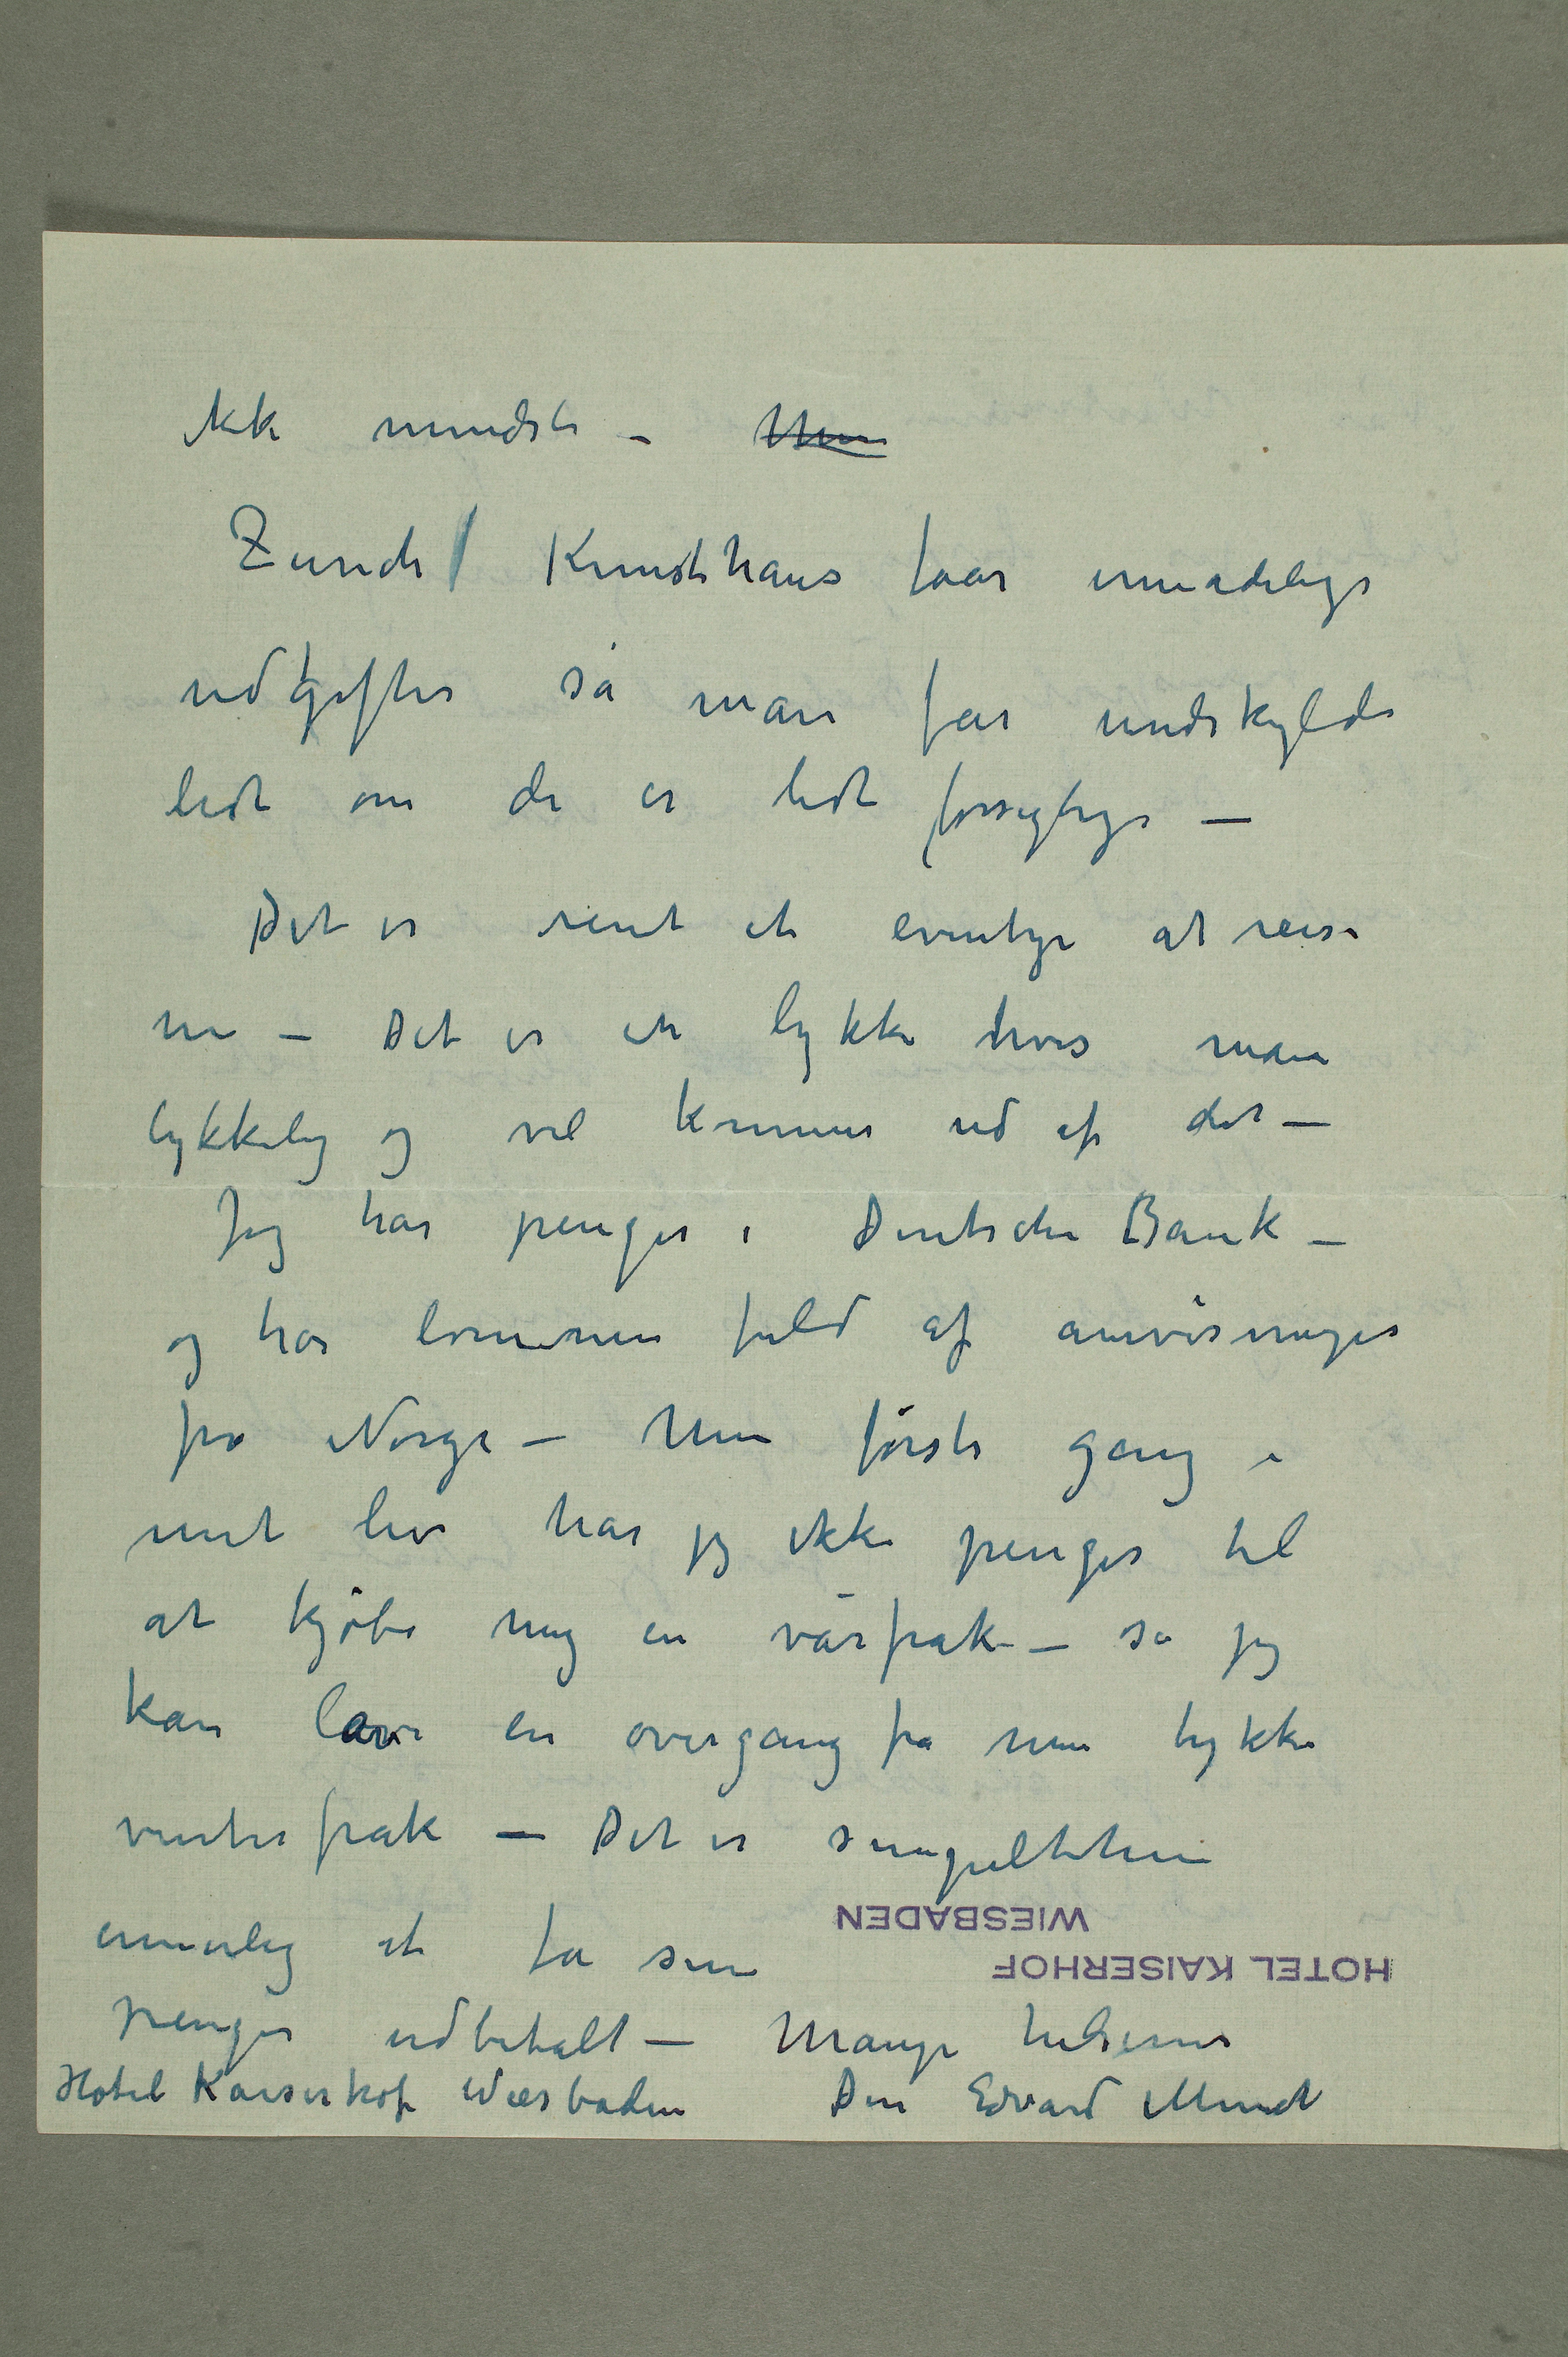 ikke mindste – M̶e̶n̶
Zürich Kunsthaus faar umådelige
udgifter så man får undskylde
lidt om de er lidt forsigtige –
Det er rent et eventyr at reise
nu – Det er en lykke hvis man
lykkelig og vel kommer ud af det –
Jeg har penger i Deutsche Bank –
og har lommen fuld af anvisninger
fra Norge – Men første gang i
mit liv har jeg ikke penger til
at kjøbe mig en vårfrak – så jeg
kan lave en overgang fra min tykke
vinterfrak – Det er simpelthen
umulig at få sine
WIESBADEN
HOTEL KAISERHOF
penger udbetalt – Mange hilsener
Hotel Kaiserhof Wiesbaden Din Edvard Munch